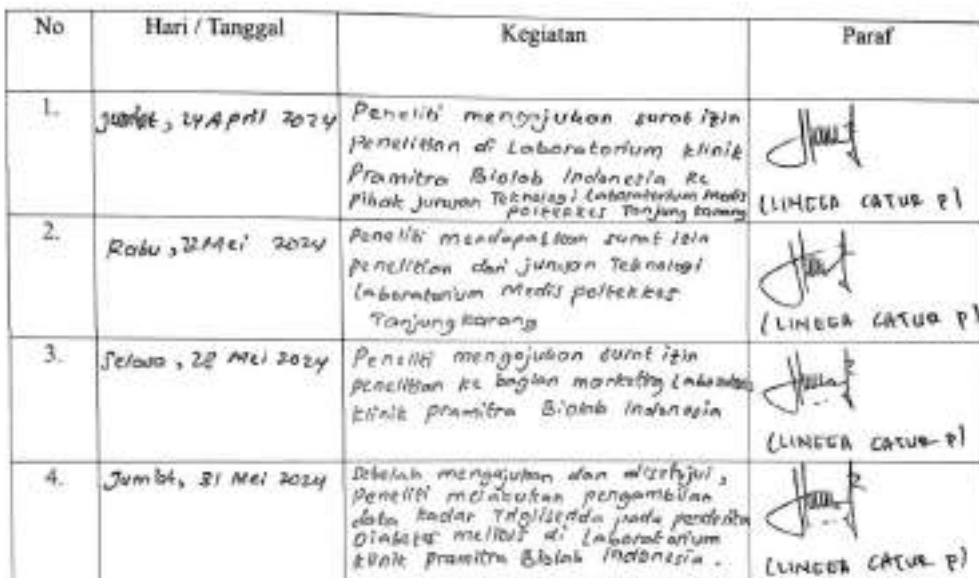 No Hari / Tanggal Kegiatan Paraf
1. Jumat, 24 April 2024
Peneliti mengajukan surat izin
Penelitian di Laboratorium klinik
Pramitra Biolab Indonesia ke
Pihak jurusan Teknologi Laboratorium Medis
Poltekkes Tanjung karang
(LINGGA CATUR P)
2. Rabu, 22 Mei 2024
Peneliti mendapatkan surat izin
penelitian dari jurusan Teknologi
Laboratorium Medis poltekkes
Tanjung karang
(LINGGA CATUR P)
3. Selasa, 28 Mei 2024
Peneliti mengajukan surat izin
penelitian ke bagian marketing Laboratorium
klinik pramitra Biolab Indonesia
(LINGGA CATUR P)
4. Jumat, 31 Mei 2024
Setelah mengajukan dan disetujui,
Peneliti melakukan pengambilan
data kadar Trigliserida pada penderita
Diabetes mellitus di Laboratorium
klinik pramitra Biolab Indonesia.
(LINGGA CATUR P)